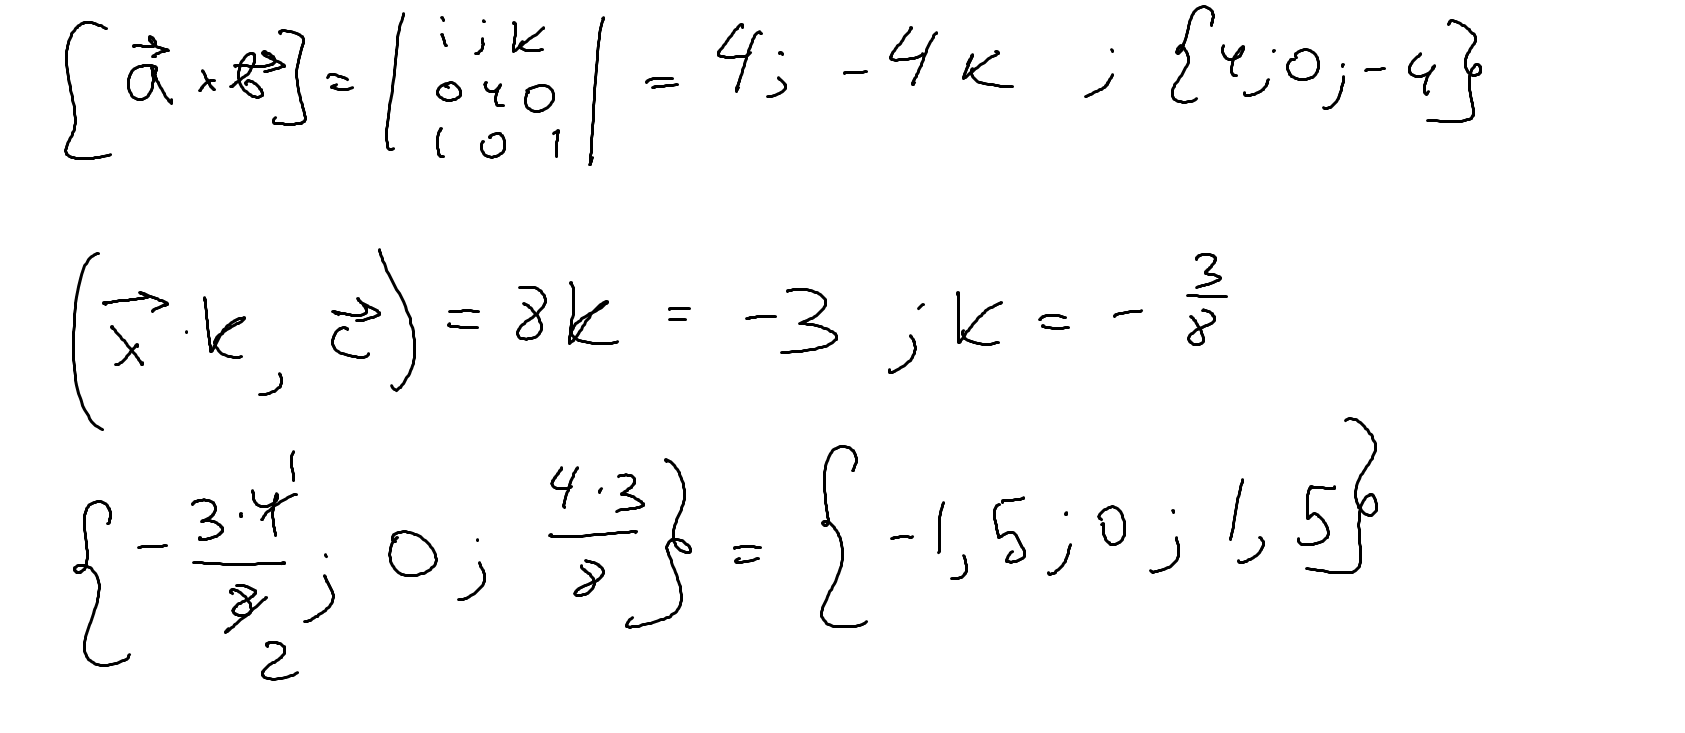 [a⃗ × b⃗] = | i j k ; 0 4 0 ; 1 0 1 | = 4i - 4k ; {4; 0; -4}
(x⃗ · k, c⃗) = 8k = -3 ; k = - 3/8
{- 3·4¹/8̸ 2 ; 0 ; 4·3/8} = {-1,5 ; 0 ; 1,5}